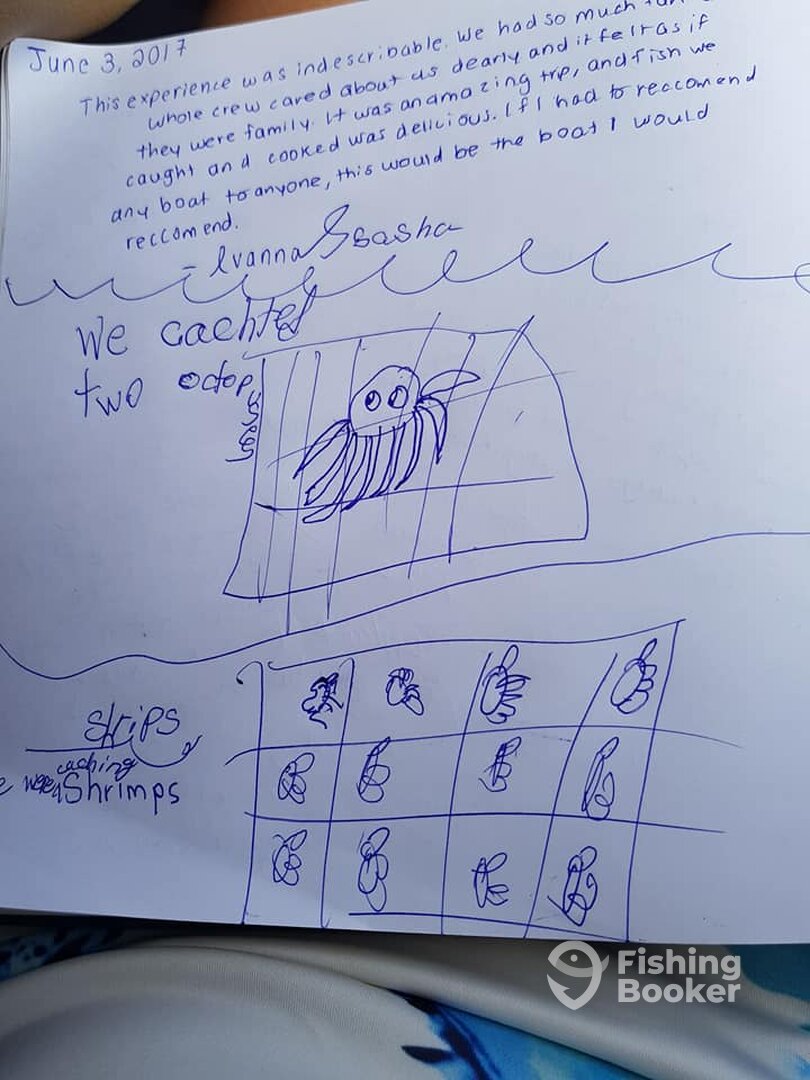 June 3, 2017
This experience was indescribable. We had so much fun
whole crew cared about us dearly and it felt as if
they were family. It was an amazing trp, and fish we
caught and cooked was delicious. If I had to reccomend
any boat to anyone, this would be the boat I would
reccomend.
- Ivanna & sasha
We cachted
two octop
skrips
were caching
Shrimps
Fishing
Booker